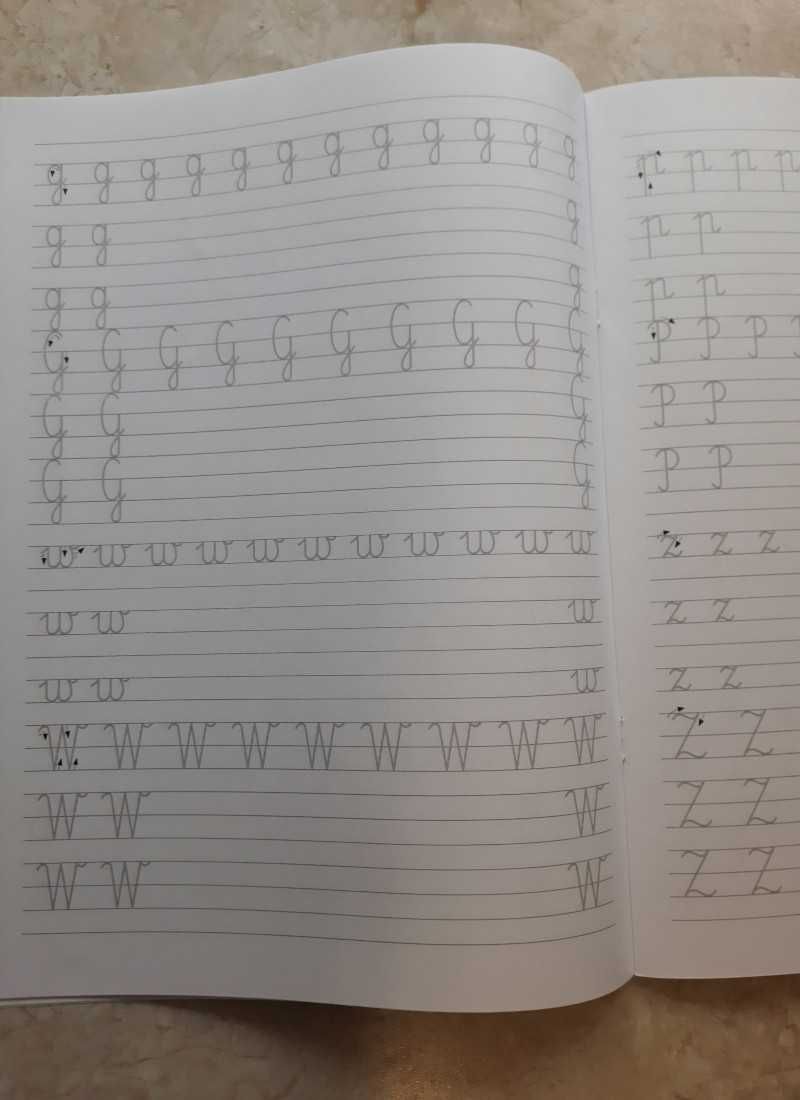 g g g g g g g g g g g g
g g g
g g g
G G G G G G G G G G
G G G
G G G
w w w w w w w w w w w
w w w
w w w
W W W W W W W W W
W W W
W W W
p p p p
p p
p p
P P P
P P
P P
z z z
z z
z z
Z Z
Z Z
Z Z